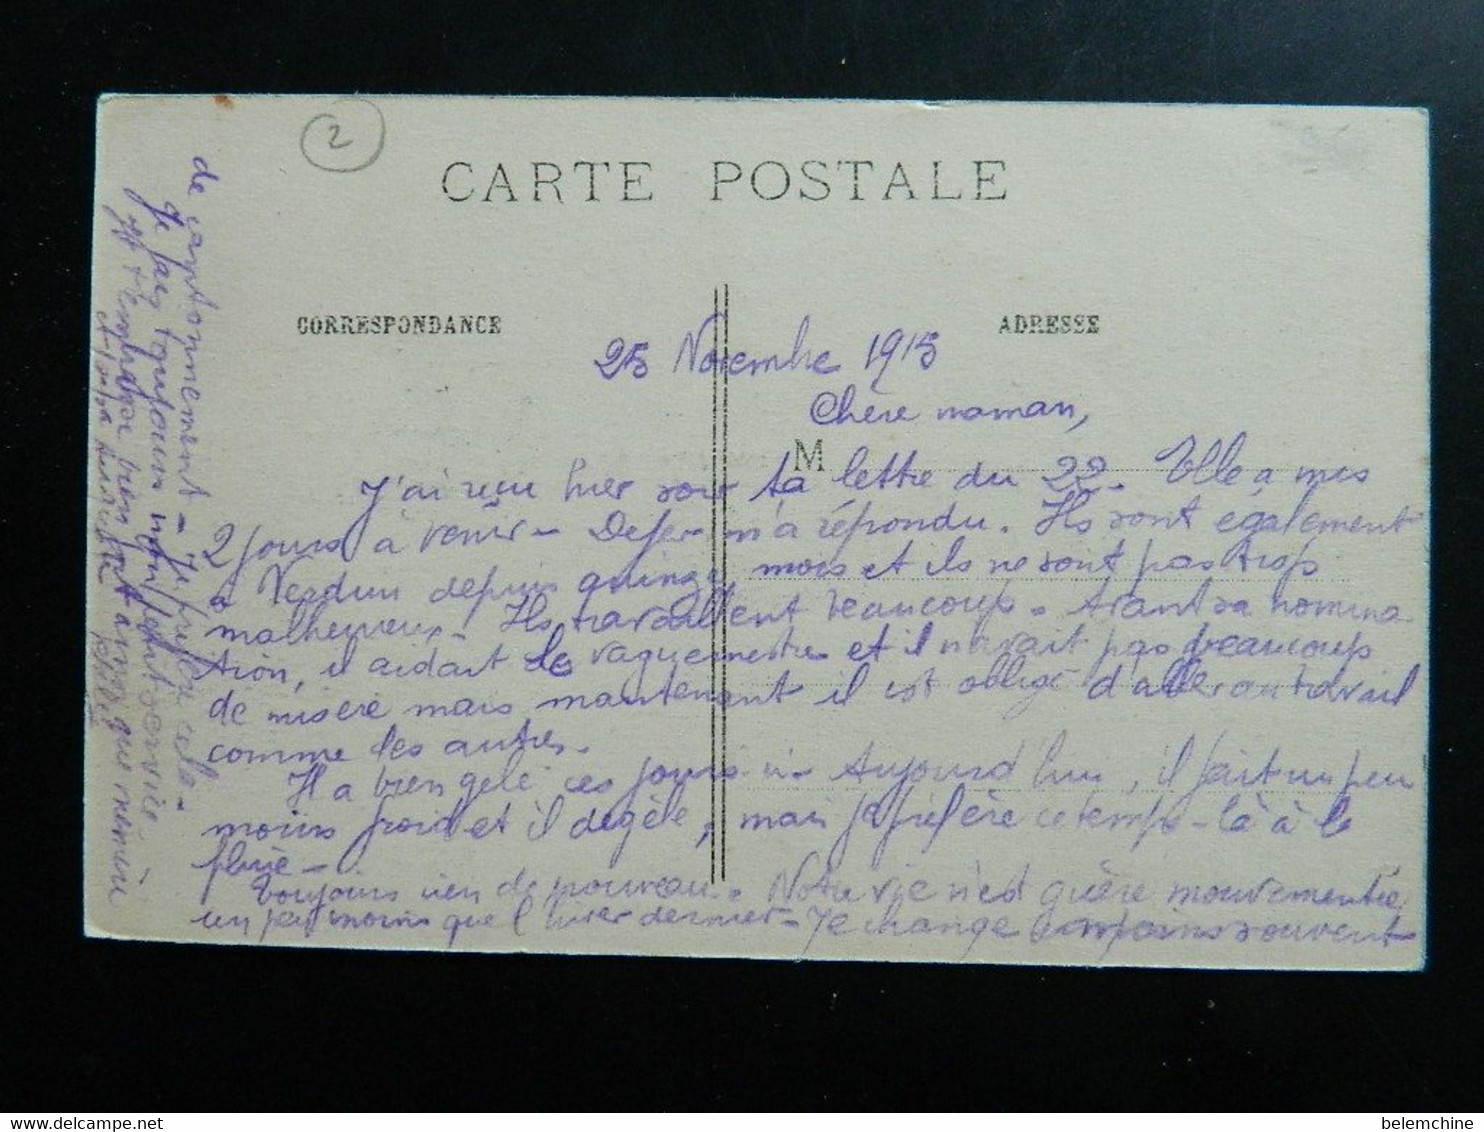 2
CARTE POSTALE
CORRESPONDANCE
ADRESSE
25 Novembre 1915
Chère maman,
M
J'ai reçu hier soir ta lettre du 22. Elle a mis
2 jours à venir - m'a répondu. Ils sont également
à Verdun depuis quinze mois et ils ne sont pas trop
malheureux. Ils travaillent beaucoup. Avant sa nomina-
tion, il aidait le vaguemestre et il n'avait pas beaucoup
de misère mais maintenant il est obligé d'aller au travail
comme les autres.
Il a bien gelé ces jours-ci - Aujourd'hui, il fait un peu
moins froid et il dégèle, mais je préfère ce temps-là à la
pluie -
Toujours rien de nouveau. Notre vie n'est guère mouvementée
un peu moins que l'hiver dernier - Je change moins souvent
de cantonnement - Je préfère cela -
Je fais toujours mon petit service.
Je t'embrasse bien fort ainsi que mémère
et
belemchine